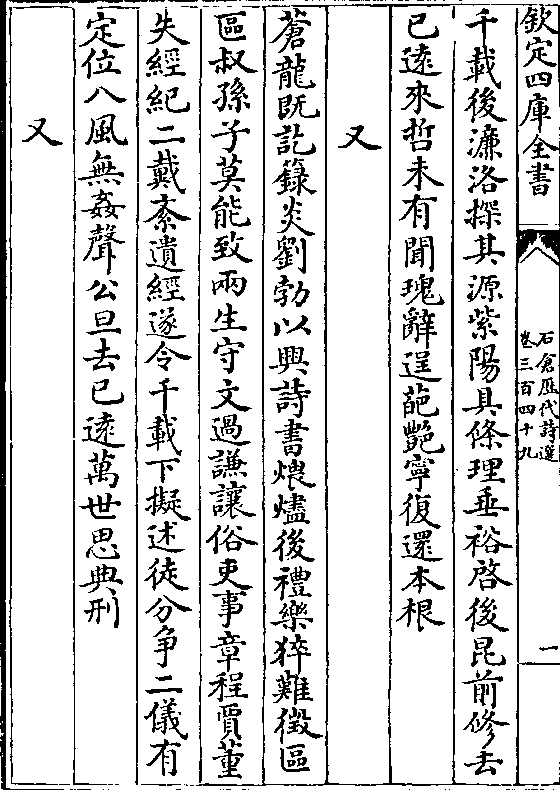 欽定四庫全書
石倉歷代詩選
卷三百四十九
一
千載後濂洛探其源紫陽具條理垂裕啓後昆前修去
已逺來哲未有聞瑰辭逞葩艷寧復還本根
又
蒼龍既訖籙炎劉勃以興詩書煨燼後禮樂猝難徴區
區叔孫子莫能致兩生守文過謙讓俗吏事章程賈董
失經紀二戴紊遺經遂令千載下擬述徒分争二儀有
定位八風無姦聲公旦去已逺萬世思典刑
又